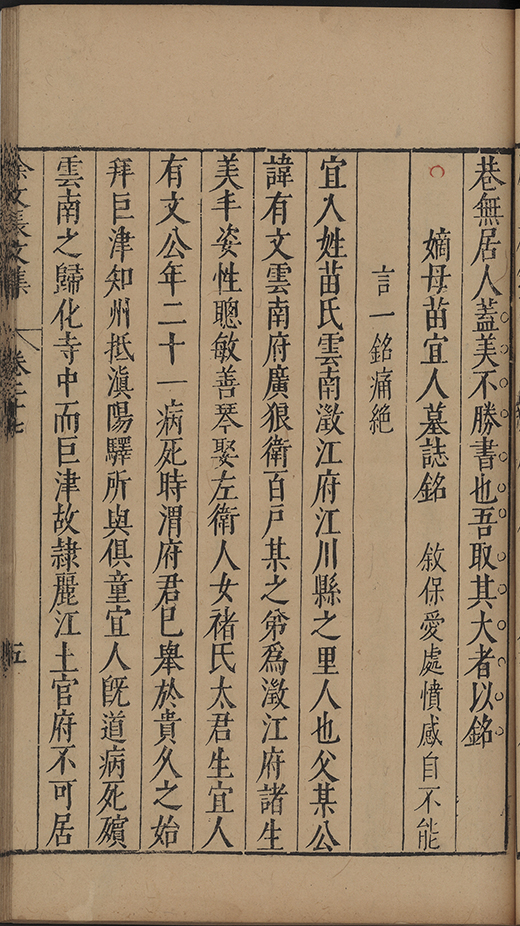 巷無居人蓋美不勝書也吾取其大者以銘
嫡母苗宜人墓誌銘 敘保愛處憤感自不能
言一銘痛絶
宜人姓苗氏雲南澂江府江川縣之里人也父某公
諱有文雲南府廣狼衛百戶某之弟爲澂江府諸生
美丰姿性聰敏善琴娶左衛人女褚氏太君生宜人
有文公年二十一病死時渭府君已舉於貴久之始
拜巨津知州抵滇陽驛所與俱童宜人旣道病死殯
雲南之歸化寺中而巨津故隷麗江土官府不可居
徐文長文集 卷二十七 五